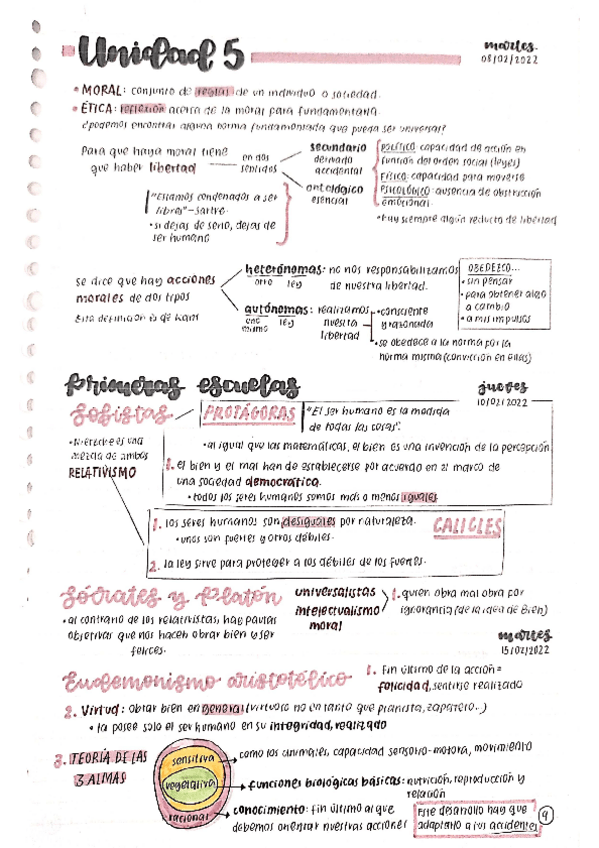 Unidad 5
martes.
08/02/2022
• MORAL: conjunto de reglas de un individuo o sociedad.
• ÉTICA: reflexión acerca de la moral para fundamentarla.
¿podemos encontrar alguna norma fundamentada que pueda ser universal?
Para que haya moral tiene
que haber libertad
en dos
sentidos
secundario
derivado
accidental
ontológico
esencial
POLÍTICO: capacidad de acción en
función del orden social (leyes)
FÍSICO: capacidad para moverse
PSICOLÓGICO: ausencia de obstrucción
emocional
• hay siempre algún reducto de libertad
"Estamos condenados a ser
libres" - Sartre.
• si dejas de serlo, dejas de
ser humano
se dice que hay acciones
morales de dos tipos
Esta definición es de Kant
heterónomas: no nos responsabilizamos
otro ley
de nuestra libertad.
autónomas: realizamos
uno ley
mismo
nuestra
libertad
• consciente
y razonada
• se obedece a la norma por la
norma misma (convicción en ellas)
OBEDEZCO...
• sin pensar
• para obtener algo
a cambio
• a mis impulsos
primeras escuelas
jueves
10/02/2022
Sofistas
PROTÁGORAS
"El ser humano es la medida
de todas las cosas".
• Nietzsche es una
mezcla de ambos
RELATIVISMO
• al igual que las matemáticas, el bien es una invención de la percepción
1. el bien y el mal han de establecerse por acuerdo en el marco de
una sociedad democrática.
• todos los seres humanos somos más o menos iguales
1. los seres humanos son desiguales por naturaleza.
• unos son fuertes y otros débiles.
CALICLES
2. la ley sirve para proteger a los débiles de los fuertes.
Sócrates y Platón
• al contrario de los relativistas, hay pautas
objetivas que nos hacen obrar bien y ser
felices.
universalistas
intelectualismo
moral
1. quien obra mal obra por
ignorancia (de la idea de Bien)
martes
15/02/2022
Eudemonismo aristotélico
1. Fin último de la acción =
felicidad, sentirse realizado
2. Virtud: obrar bien en general (virtuoso no en tanto que pianista, zapatero...)
• la posee solo el ser humano en su integridad, realizado
3. TEORÍA DE LAS
3 ALMAS
sensitiva
vegetativa
racional
como los animales, capacidad sensorio-motora, movimiento
funciones biológicas básicas: nutrición, reproducción y
relación
conocimiento: fin último al que
debemos orientar nuestras acciones
Este desarrollo hay que
adaptarlo a los accidentes
9